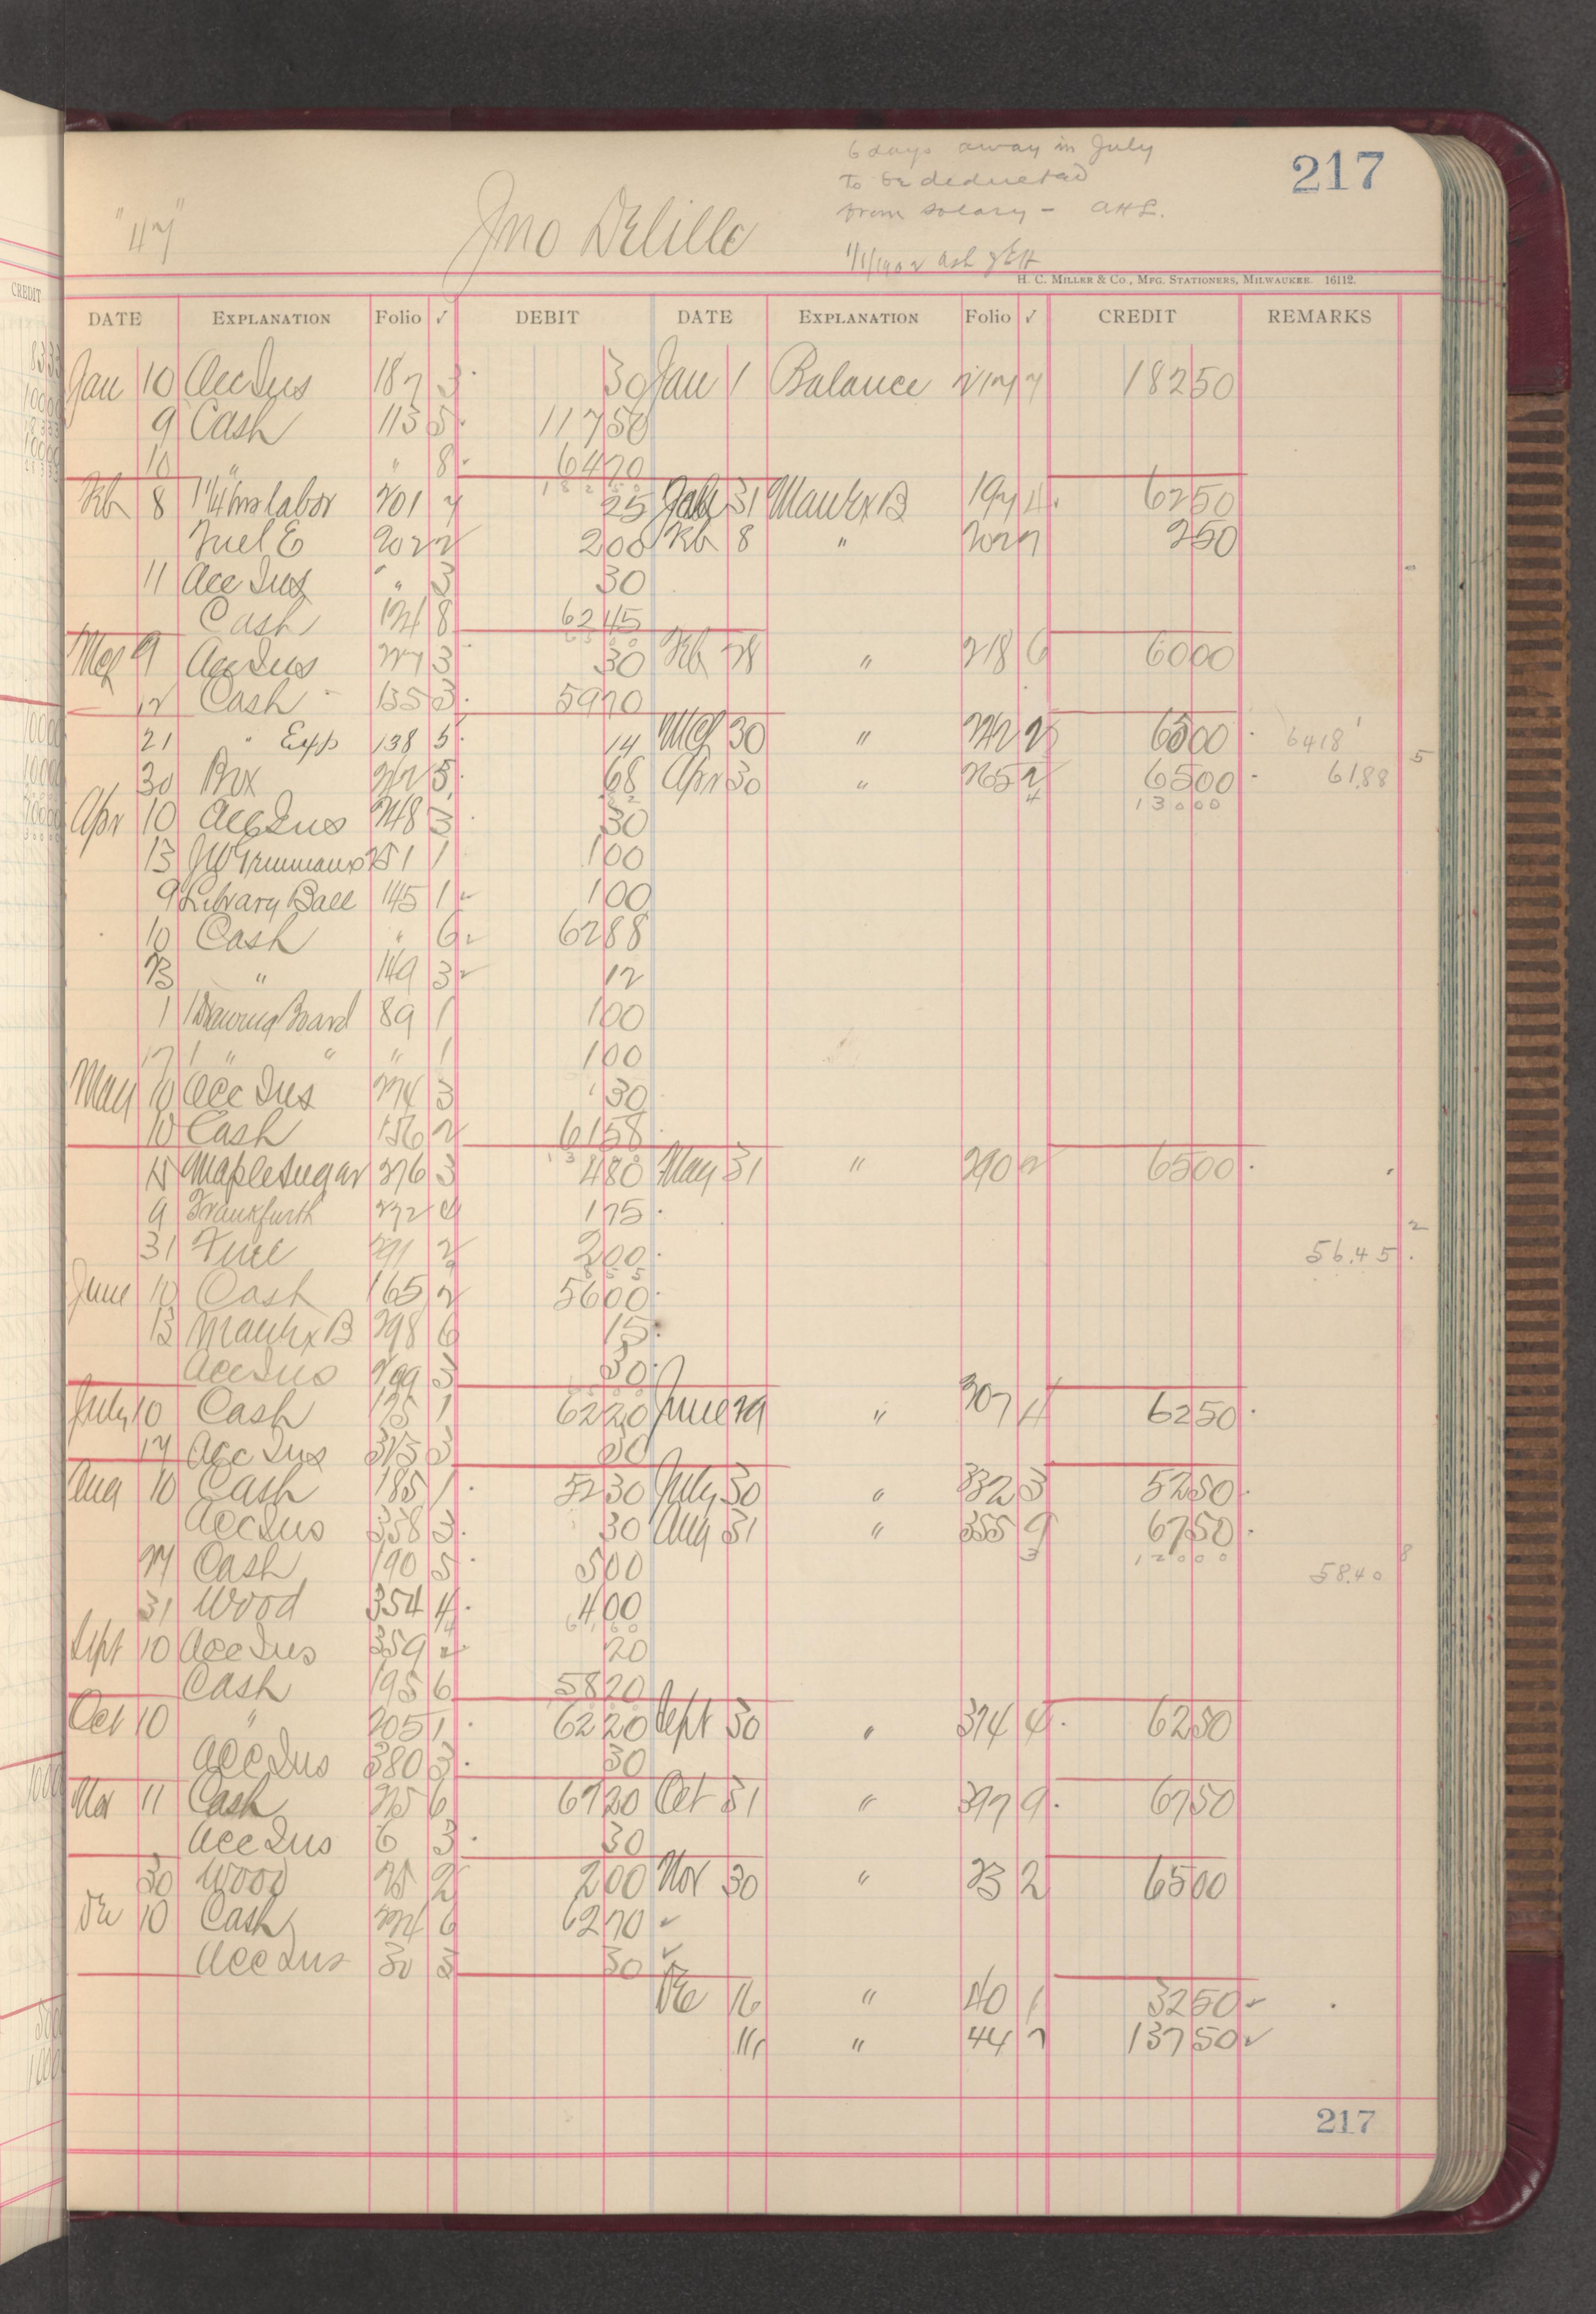 6 days away in July
217
to be deducted
from salary - AHL.
"47"
Jno Delille
H. C. MILLER & CO., MFG. STATIONERS, MILWAUKEE. 16112.
CREDIT
DATE EXPLANATION Folio ✓ DEBIT DATE EXPLANATION Folio ✓ CREDIT REMARKS
Jan 10 Acc Ins 187 3 30 Jan 1 Balance 18250
9 Cash 113 5 11750
10 " " 8 6470
Feb 8 1 1/4 hrs labor 201 7 25 31 Mauk & B 197 4 6250
Fuel E 202 2 200 Feb 8 " 202 7 250
11 Acc Ins " 3 30
Cash 124 8 6245
Mch 9 Acc Ins 227 3 30 Feb 28 " 218 6 6000
12 Cash 135 3 5970
21 " Exp 138 5 14 Mch 30 " 242 2 6500 6418
30 Box 242 5 68 Apr 30 " 265 2 6500 61.88
13000
Apr 10 Acc Ins 248 3 30
13 251 1 100
9 Library Ball 145 1 100
10 Cash " 6 6288
13 " 149 3 12
1 Drawing Board 89 1 100
" " " 1 100
May 10 Acc Ins 274 3 30
10 Cash 156 2 6158
15 Maple Sugar 276 3 480 May 31 " 290 2 6500
9 Frankfurth 272 175
31 Fuel 291 2 200 56.45
June 10 Cash 165 2 5600
13 Mauk & B 298 6 15
Acc Ins 299 3 30
July 10 Cash 175 1 6220 June 29 " 307 4 6250
17 Acc Ins 315 3 30
Aug 10 Cash 185 1 5230 July 30 " 332 3 5250
Acc Ins 338 3 30 Aug 31 " 355 9 6750
12000
27 Cash 190 5 500 58.40
31 Wood 354 4 400
Sept 10 Acc Ins 359 2 20
Cash 195 6 5820
Oct 10 " 205 1 6220 Sept 30 " 374 4 6250
Acc Ins 380 3 30
Nov 11 Cash 215 6 6720 Oct 31 " 397 9 6750
Acc Ins 6 3 30
30 Wood 25 2 200 Nov 30 " 23 2 6500
Dec 10 Cash 224 6 6270 ✓
Acc Ins 30 3 30 ✓
Dec 16 " 40 1 3250 ✓
" " 44 7 13750 ✓
217